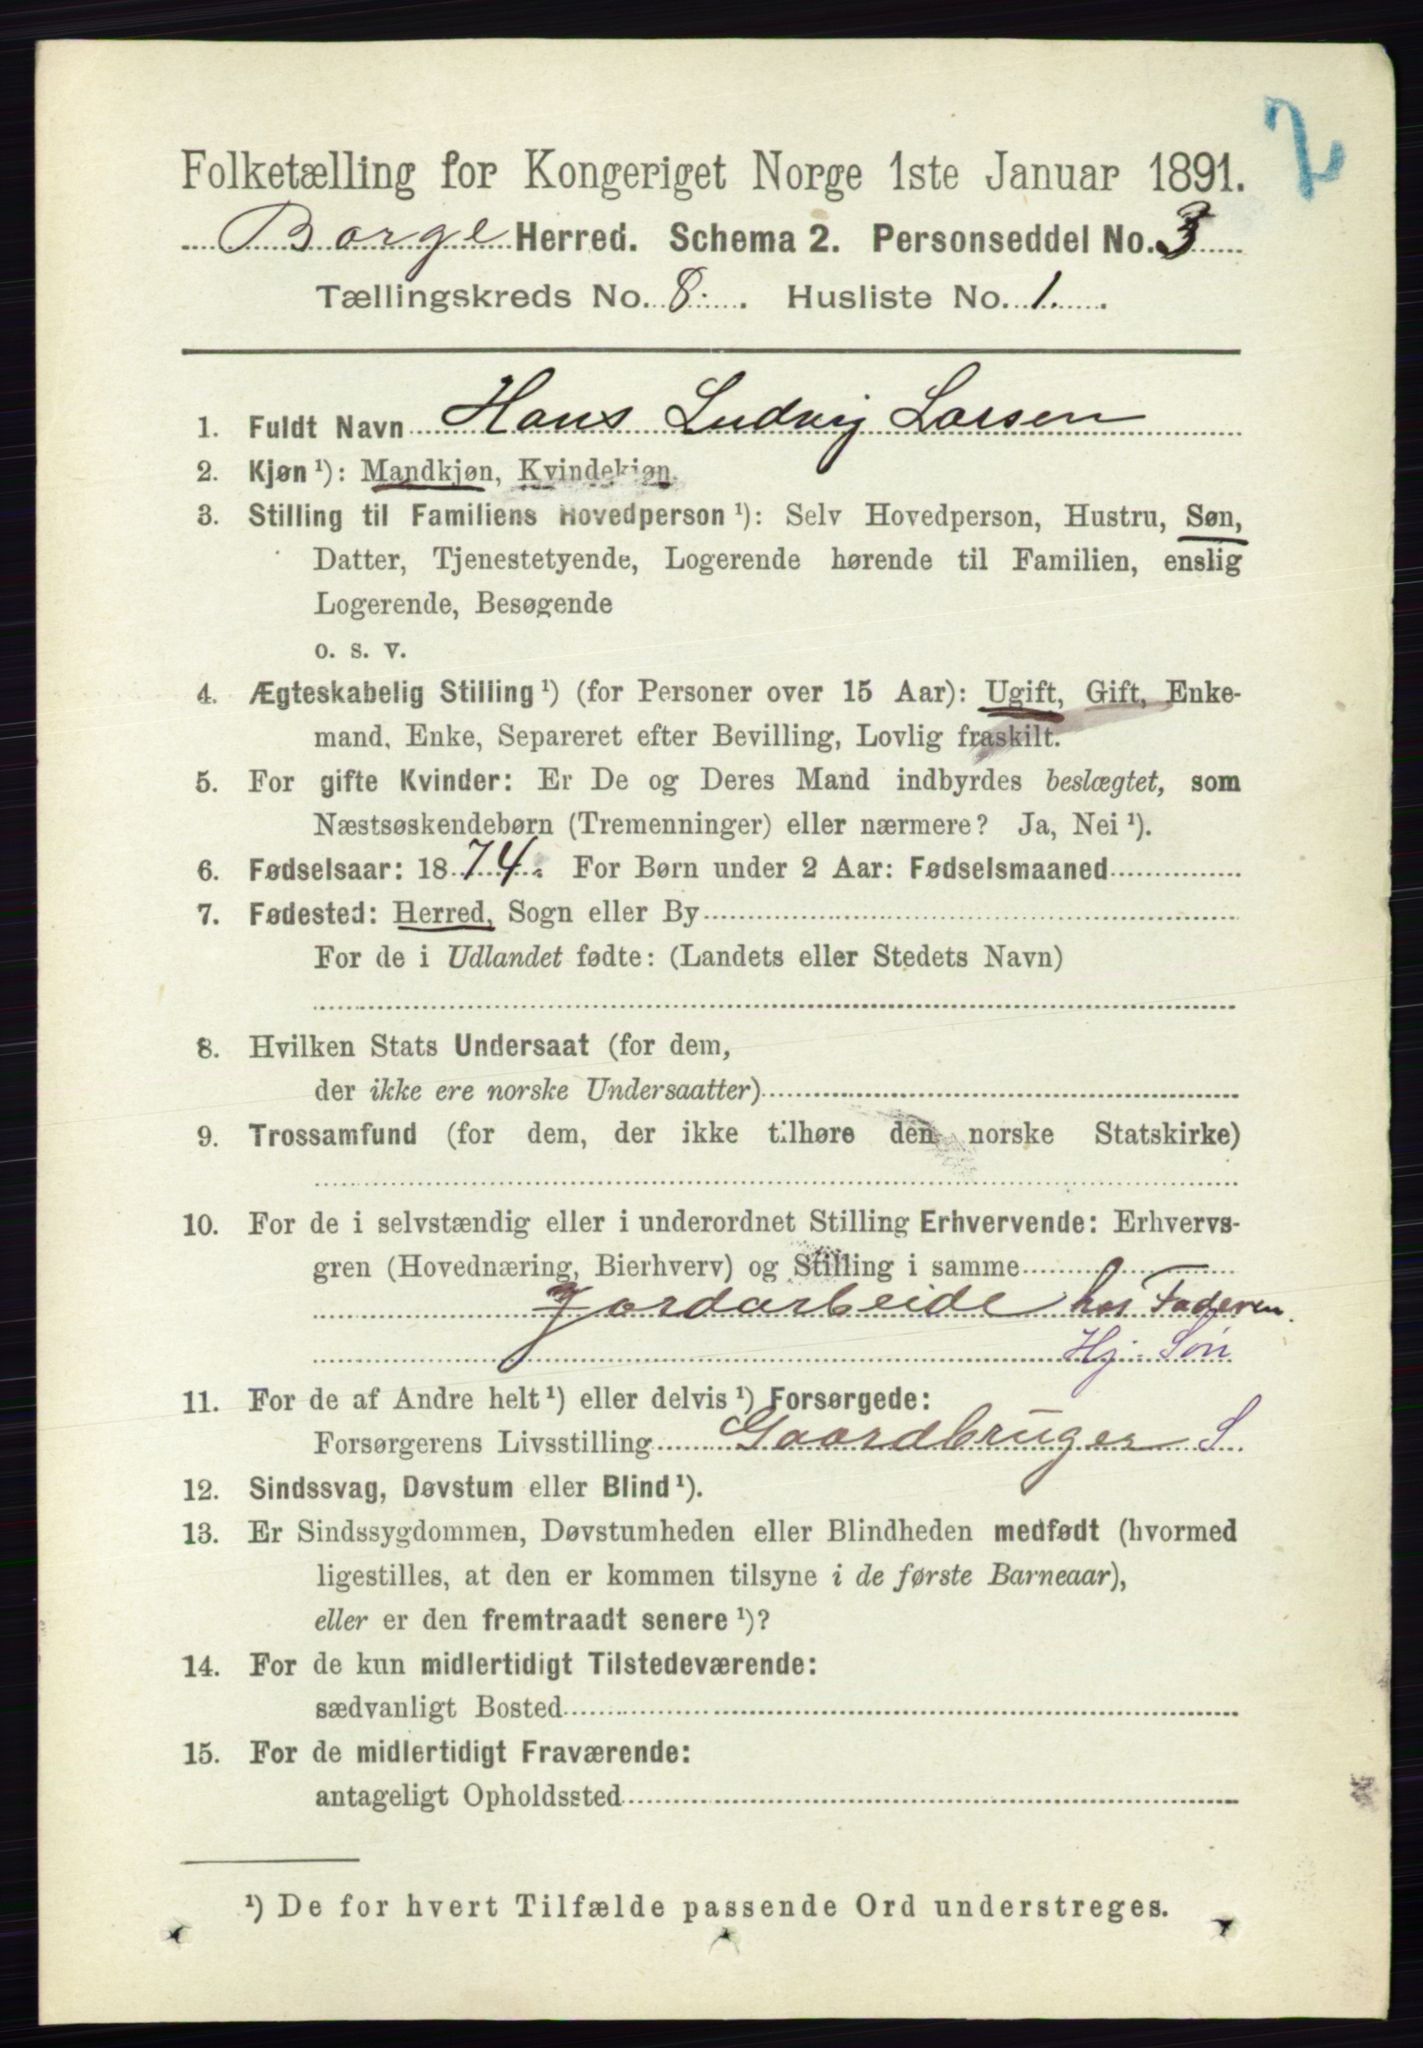 2
Folketælling for Kongeriget Norge 1ste Januar 1891.
Borge Herred. Schema 2. Personseddel No. 3
Tællingskreds No. 8. Husliste No. 1.
1. Fuldt Navn Hans Ludvig Larsen
2. Kjøn ¹): Mandkjøn, Kvindekjøn.
3. Stilling til Familiens Hovedperson ¹): Selv Hovedperson, Hustru, Søn,
Datter, Tjenestetyende, Logerende hørende til Familien, enslig
Logerende, Besøgende
o. s. v.
4. Ægteskabelig Stilling ¹) (for Personer over 15 Aar): Ugift, Gift, Enke-
mand, Enke, Separeret efter Bevilling, Lovlig fraskilt.
5. For gifte Kvinder: Er De og Deres Mand indbyrdes beslægtet, som
Næstsøskendebørn (Tremenninger) eller nærmere? Ja, Nei ¹).
6. Fødselsaar: 1874. For Børn under 2 Aar: Fødselsmaaned
7. Fødested: Herred, Sogn eller By
For de i Udlandet fødte: (Landets eller Stedets Navn)
8. Hvilken Stats Undersaat (for dem,
der ikke ere norske Undersaatter)
9. Trossamfund (for dem, der ikke tilhøre den norske Statskirke)
10. For de i selvstændig eller i underordnet Stilling Erhvervende: Erhvervs-
gren (Hovednæring, Bierhverv) og Stilling i samme
Jordarbeide hos Faderen.
Hj. Søn
11. For de af Andre helt ¹) eller delvis ¹) Forsørgede:
Forsørgerens Livsstilling Gaardbruger S
12. Sindssvag, Døvstum eller Blind ¹).
13. Er Sindssygdommen, Døvstumheden eller Blindheden medfødt (hvormed
ligestilles, at den er kommen tilsyne i de første Barneaar),
eller er den fremtraadt senere ¹)?
14. For de kun midlertidigt Tilstedeværende:
sædvanligt Bosted
15. For de midlertidigt Fraværende:
antageligt Opholdssted
¹) De for hvert Tilfælde passende Ord understreges.